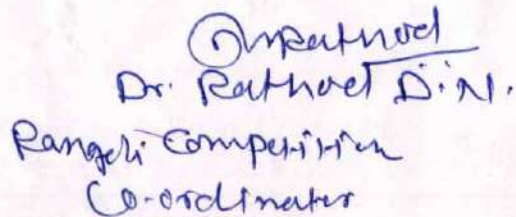 DnRathod
Dr. Rathod D.N.
Rangoli Competition
Co-ordinator